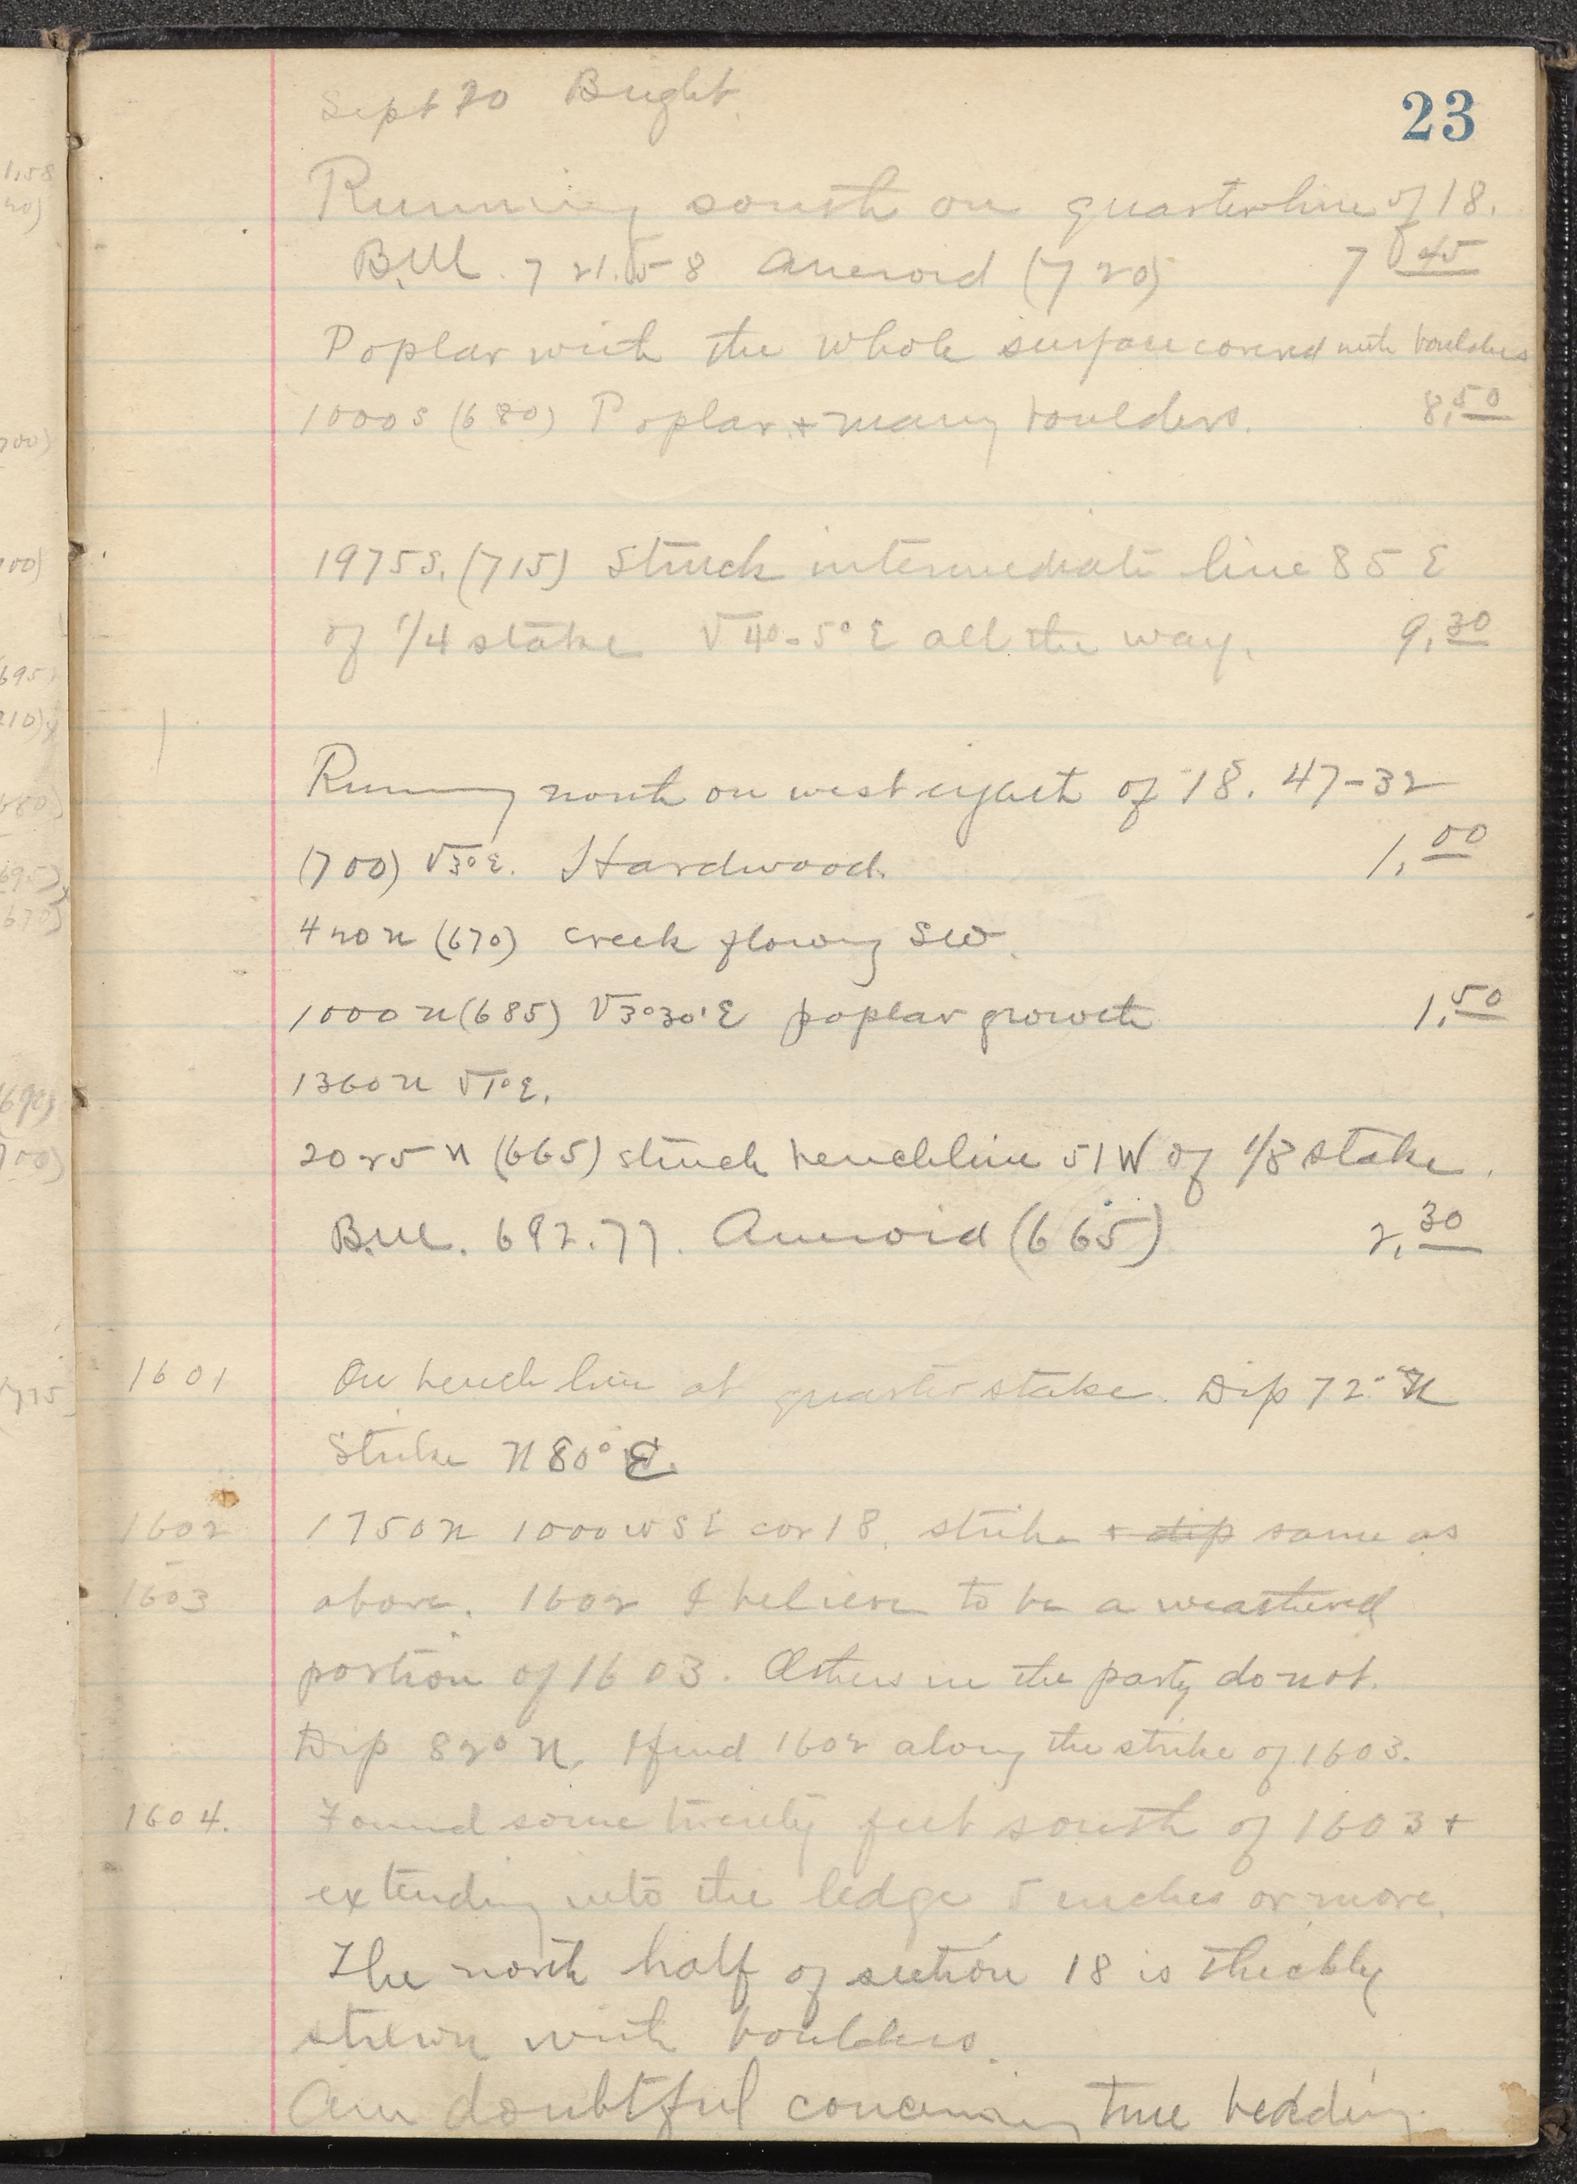 23
Sept 20 Bright.
Running south on quarterline of 18.
B.M. 721.58 Aneroid (720) 7 45
Poplar with the whole surface covered with boulders
1000 S (680) Poplar + many boulders. 8,50
1975 S. (715) Struck intermediate line 85 E
of 1/4 stake V 4°-5° E all the way. 9,30
Running north on west eighth of 18. 47-32
(700) V 3° E. Hardwood. 1,00
420 N (670) creek flowing SW.
1000 N (685) V 3°30' E poplar growth 1,50
1360 N V 1° E.
2025 N (665) struck benchline 51 W of 1/8 stake.
B.M. 692.77. Aneroid (665) 2,30
1601 On bench line at quarter stake. Dip 72° N
Strike N 80° E.
1602 1750 N 1000 W SE cor 18. strike + dip same as
1603 above. 1602 I believe to be a weathered
portion of 1603. Others in the party do not.
Dip 82° N. I find 1602 along the strike of 1603.
1604. Found some twenty feet south of 1603 +
extending into the ledge 5 inches or more.
The north half of section 18 is thickly
strewn with boulders.
Am doubtful concerning true bedding